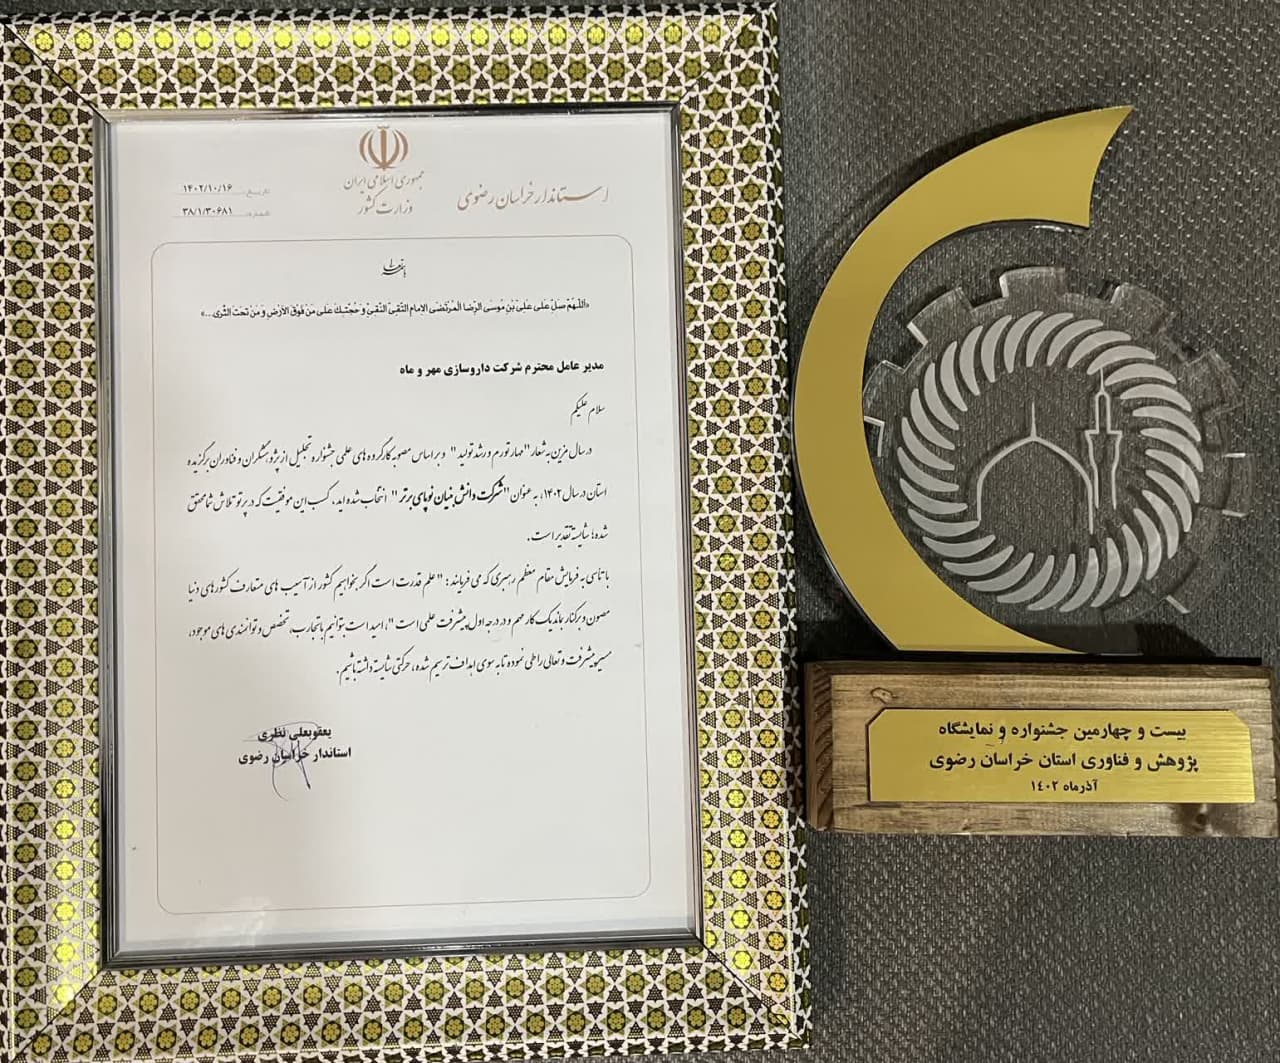 جمهوری اسلامی ایران
وزارت کشور
استاندار خراسان رضوی
تاریخ: ۱۴۰۲/۱۰/۱۶
شماره: ۳۸/۱/۳۰۶۸۱
باسمه تعالی
«اللّهُمَّ صَلِّ عَلی عَلِیِّ بنِ موسَی الرِّضا المُرتَضی الاِمامِ التَّقیِّ النَّقیِّ وَ حُجَّتِکَ عَلی مَن فَوقَ الاَرضِ وَ مَن تَحتَ الثَّری...»
مدیر عامل محترم شرکت داروسازی مهر و ماه
سلام علیکم
در سال مزین به شعار "مهار تورم و رشد تولید" و بر اساس مصوبه کارگروه های علمی جشنواره تجلیل از پژوهشگران و فناوران برگزیده
استان در سال ۱۴۰۲، به عنوان "شرکت دانش بنیان نوپای برتر" انتخاب شده اید، کسب این موفقیت که در پرتو تلاش شما محقق
شده، شایسته تقدیر است.
با تأسی به فرمایش مقام معظم رهبری که می فرمایند: "علم قدرت است اگر بخواهیم کشور از آسیب های متعارف کشورهای دنیا
مصون و برکنار بماند یک کار مهم و در درجه اول پیشرفت علمی است"، امید است بتوانیم با تجارب، تخصص و توانمندی های موجود،
مسیر پیشرفت و تعالی را طی نموده تا به سوی اهداف ترسیم شده، حرکتی شایسته داشته باشیم.
یعقوبعلی نظری
استاندار خراسان رضوی
بیست و چهارمین جشنواره و نمایشگاه
پژوهش و فناوری استان خراسان رضوی
آذرماه ۱۴۰۲